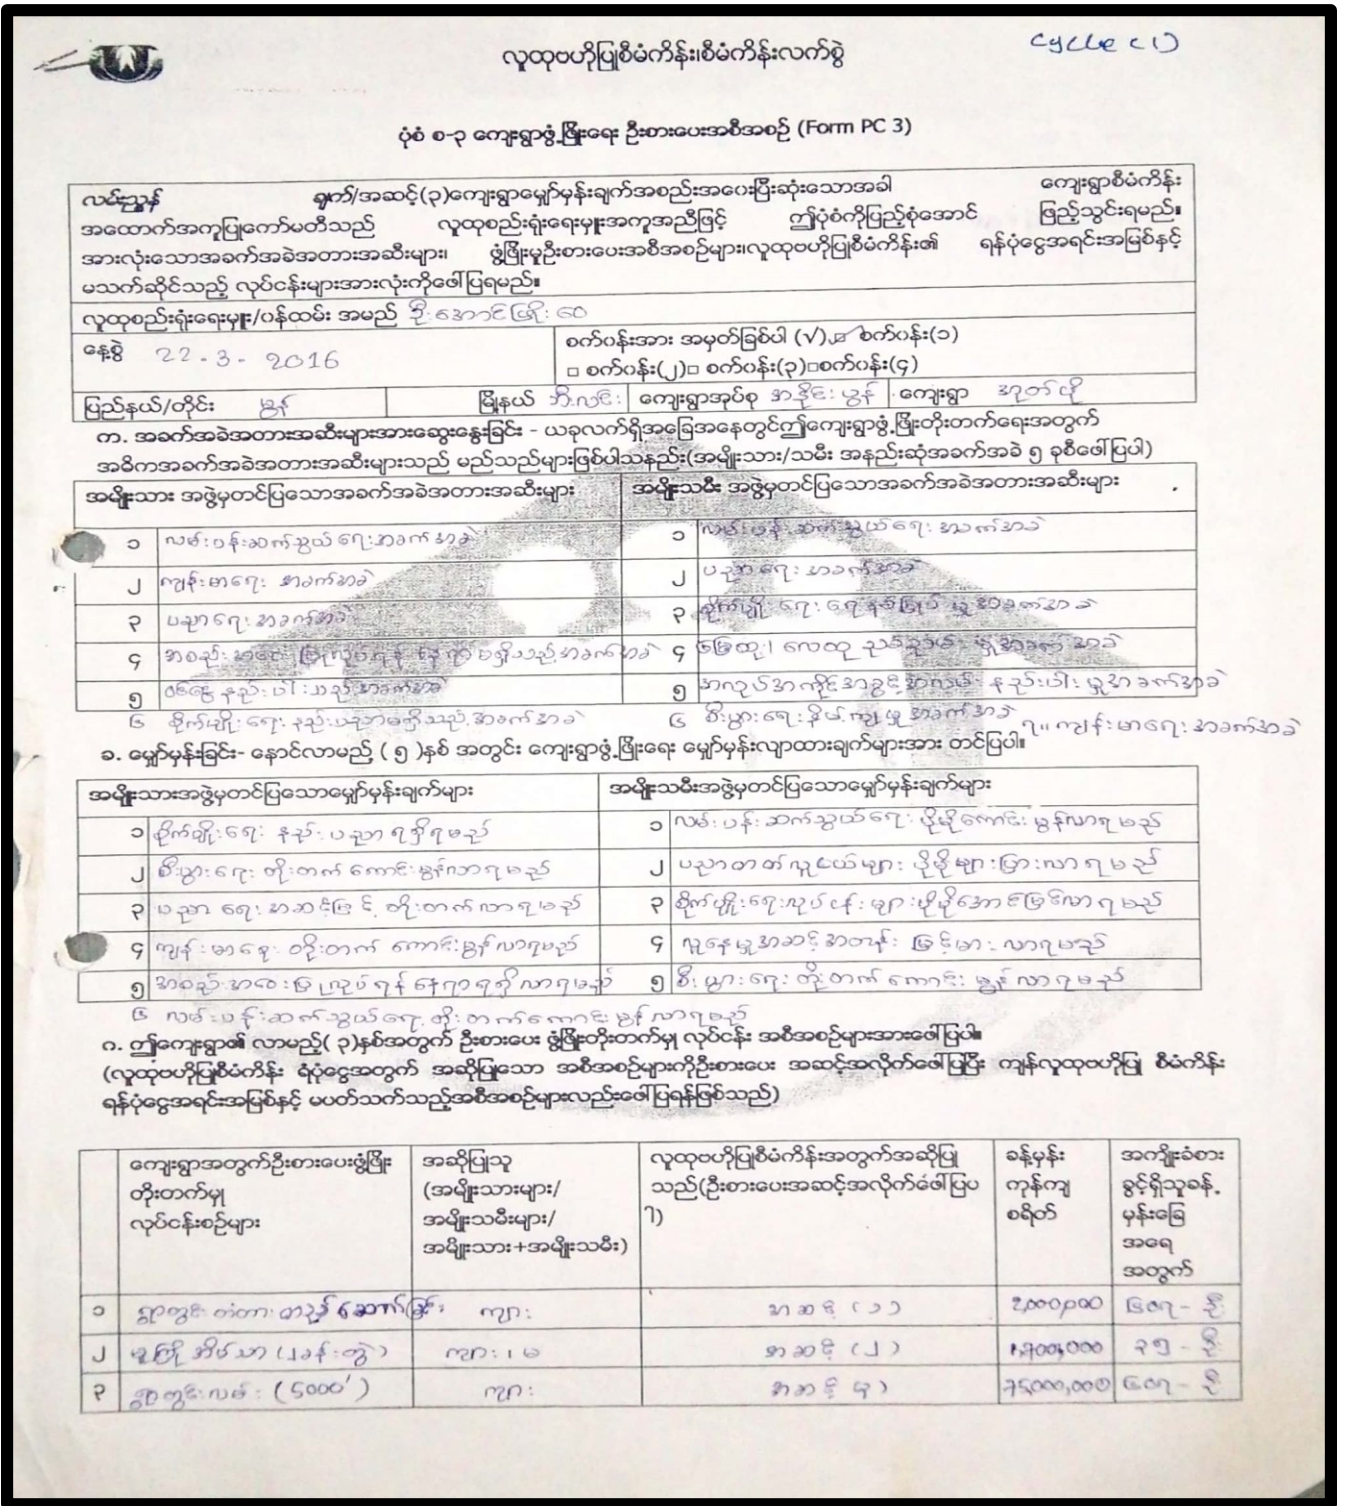 Cycle (1)
လူထုဗဟိုပြုစီမံကိန်း၊စီမံကိန်းလက်စွဲ
ပုံစံ စ-၃ ကျေးရွာဖွံ့ဖြိုးရေး ဦးစားပေးအစီအစဉ် (Form PC 3)
လမ်းညွှန် ချက်/အဆင့်(၃)ကျေးရွာမျှော်မှန်းချက်အစည်းအဝေးပြီးဆုံးသောအခါ ကျေးရွာစီမံကိန်း
အထောက်အကူပြုကော်မတီသည် လူထုစည်းရုံးရေးမှူးအကူအညီဖြင့် ဤပုံစံကိုပြည့်စုံအောင် ဖြည့်သွင်းရမည်။
အားလုံးသောအခက်အခဲအတားအဆီးများ၊ ဖွံ့ဖြိုးမှုဦးစားပေးအစီအစဉ်များ၊လူထုဗဟိုပြုစီမံကိန်း၏ ရန်ပုံငွေအရင်းအမြစ်နှင့်
မသက်ဆိုင်သည့် လုပ်ငန်းများအားလုံးကိုဖေါ်ပြရမည်။
လူထုစည်းရုံးရေးမှူး/ဝန်ထမ်း အမည် ဦးအောင်ဖြိုးဝေ
နေ့စွဲ 22-3-2016 စက်ဝန်းအား အမှတ်ခြစ်ပါ (√) ☑ စက်ဝန်း(၁)
□ စက်ဝန်း(၂)□ စက်ဝန်း(၃)□စက်ဝန်း(၄)
ပြည်နယ်/တိုင်း မွန် မြို့နယ် ဘီးလင်း ကျေးရွာအုပ်စု ကျေးရွာ
က. အခက်အခဲအတားအဆီးများအားဆွေးနွေးခြင်း - ယခုလက်ရှိအခြေအနေတွင်ဤကျေးရွာဖွံ့ဖြိုးတိုးတက်ရေးအတွက်
အဓိကအခက်အခဲအတားအဆီးများသည် မည်သည်များဖြစ်ပါသနည်း(အမျိုးသား/သမီး အနည်းဆုံးအခက်အခဲ ၅ ခုစီဖေါ်ပြပါ)
အမျိုးသား အဖွဲ့မှတင်ပြသောအခက်အခဲအတားအဆီးများ အမျိုးသမီး အဖွဲ့မှတင်ပြသောအခက်အခဲအတားအဆီးများ
၁ လမ်းပန်းဆက်သွယ်ရေးအခက်အခဲ ၁ လမ်းပန်းဆက်သွယ်ရေးအခက်အခဲ
၂ ကျန်းမာရေး အခက်အခဲ ၂ ပညာရေးအခက်အခဲ
၃ ပညာရေးအခက်အခဲ ၃ စိုက်ပျိုးရေး ရေ အခက်အခဲ
၄ အစည်းအဝေးပြုလုပ်ရန် နေရာမရှိသည့်အခက်အခဲ ၄ အခက်အခဲ
၅ ဝင်ငွေနည်းပါးသည့်အခက်အခဲ ၅ အလုပ်အကိုင်အခွင့်အလမ်းနည်းပါးမှုအခက်အခဲ
၆ စိုက်ပျိုးရေးနည်းပညာမရှိသည့်အခက်အခဲ ၆ စီးပွားရေးနိမ့်ကျမှုအခက်အခဲ ၇။ ကျန်းမာရေးအခက်အခဲ
ခ. မျှော်မှန်းခြင်း- နောင်လာမည့် ( ၅ )နှစ် အတွင်း ကျေးရွာဖွံ့ဖြိုးရေး မျှော်မှန်းလျာထားချက်များအား တင်ပြပါ။
အမျိုးသားအဖွဲ့မှတင်ပြသောမျှော်မှန်းချက်များ အမျိုးသမီးအဖွဲ့မှတင်ပြသောမျှော်မှန်းချက်များ
၁ စိုက်ပျိုးရေး နည်းပညာရရှိရမည် ၁ လမ်းပန်းဆက်သွယ်ရေးပိုမိုကောင်းမွန်လာရမည်
၂ စီးပွားရေး တိုးတက်ကောင်းမွန်လာရမည် ၂ ပညာတတ်လူငယ်များ ပိုမိုများပြားလာရမည်
၃ ပညာရေးအဆင့်မြင့် တိုးတက်လာရမည် ၃ စိုက်ပျိုးရေးလုပ်ငန်းများပိုမိုအောင်မြင်လာရမည်
၄ ကျန်းမာရေး တိုးတက်ကောင်းမွန်လာရမည် ၄ လူနေမှုအဆင့်အတန်းမြင့်မားလာရမည်
၅ အစည်းအဝေးပြုလုပ်ရန်နေရာရရှိလာရမည် ၅ စီးပွားရေးတိုးတက်ကောင်းမွန်လာရမည်
၆ လမ်းပန်းဆက်သွယ်ရေးတိုးတက်ကောင်းမွန်လာရမည်
ဂ. ဤကျေးရွာ၏ လာမည့်( ၃)နှစ်အတွက် ဦးစားပေး ဖွံ့ဖြိုးတိုးတက်မှု လုပ်ငန်း အစီအစဉ်များအားဖေါ်ပြပါ။
(လူထုဗဟိုပြုစီမံကိန်း ရံပုံငွေအတွက် အဆိုပြုသော အစီအစဉ်များကိုဦးစားပေး အဆင့်အလိုက်ဖေါ်ပြပြီး ကျန်လူထုဗဟိုပြု စီမံကိန်း
ရန်ပုံငွေအရင်းအမြစ်နှင့် မပတ်သက်သည့်အစီအစဉ်များလည်းဖေါ်ပြရန်ဖြစ်သည်)
ကျေးရွာအတွက်ဦးစားပေးဖွံ့ဖြိုး
တိုးတက်မှု
လုပ်ငန်းစဉ်များ
အဆိုပြုသူ
(အမျိုးသားများ/
အမျိုးသမီးများ/
အမျိုးသား+အမျိုးသမီး)
လူထုဗဟိုပြုစီမံကိန်းအတွက်အဆိုပြု
သည်(ဦးစားပေးအဆင့်အလိုက်ဖေါ်ပြပ
ါ)
ခန့်မှန်း
ကုန်ကျ
စရိတ်
အကျိုးခံစား
ခွင့်ရှိသူခန့်
မှန်းခြေ
အရေ
အတွက်
၁ ရွာတွင်းတံတားတည်ဆောက်ခြင်း ကျား အဆင့် (၁) 2,000,000 ၆၀၇ - ဦး
၂ မူကြိုအိမ်သာ (၂ခန်းတွဲ) ကျား၊ မ အဆင့် (၂) 1,700,000 ၃၅ - ဦး
၃ ရွာတွင်းလမ်း (5000') ကျား အဆင့် (၃) 75,000,000 ၆၀၇ - ဦး